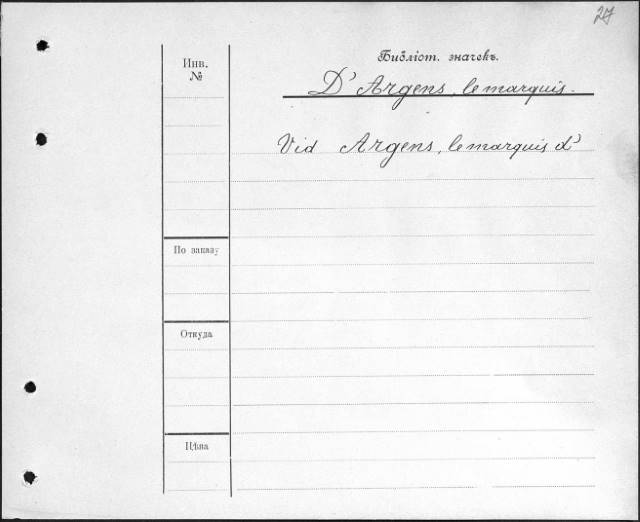 27
Библіот. значекъ.
Инв.
№
D' Argens, le marquis.
Vid Argens, le marquis d'
По заказу
Откуда
Цѣна